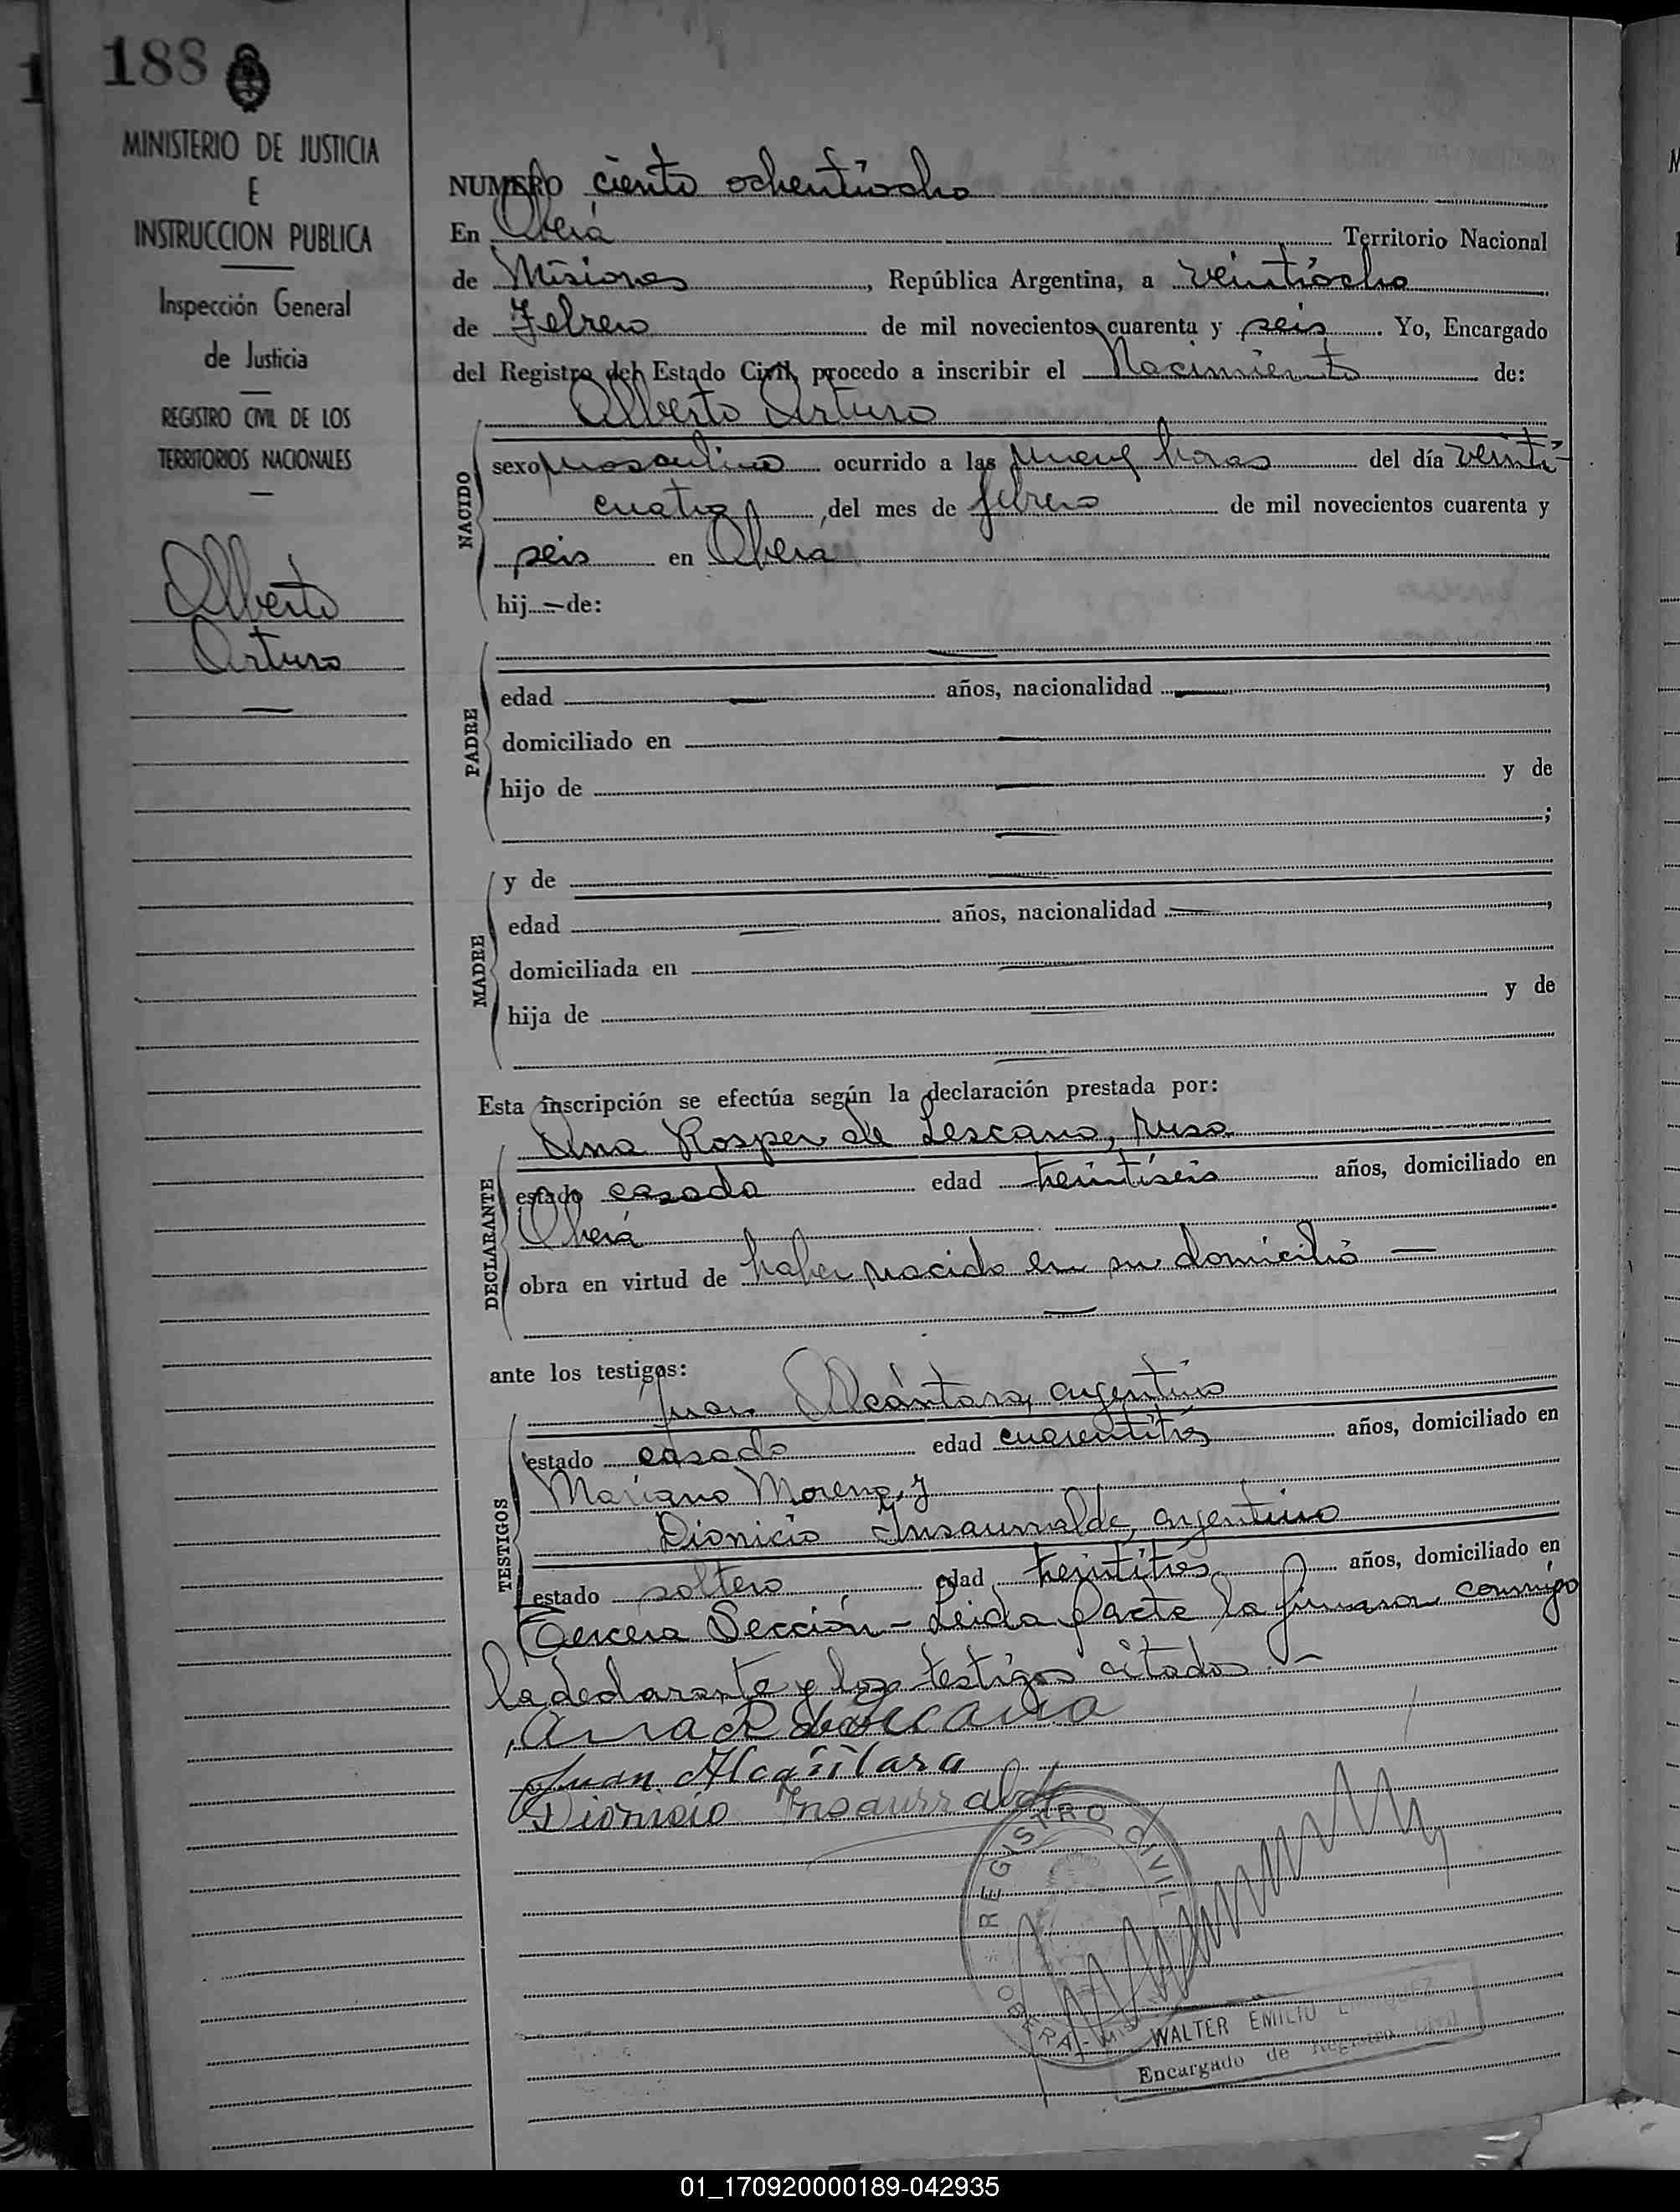 188
MINISTERIO DE JUSTICIA
E
INSTRUCCION PUBLICA
Inspección General
de Justicia
REGISTRO CIVIL DE LOS
TERRITORIOS NACIONALES
Alberto
Arturo
NUMERO ciento ochentiocho
En Oberá Territorio Nacional
de Misiones, República Argentina, a veintiocho
de Febrero de mil novecientos cuarenta y seis. Yo, Encargado
del Registro del Estado Civil, procedo a inscribir el Nacimiento de:
Alberto Arturo
NACIDO
sexo masculino ocurrido a las nueve horas del día veinti-
cuatro, del mes de febrero de mil novecientos cuarenta y
seis en Obera
hij — de:
PADRE
edad — años, nacionalidad —,
domiciliado en —
hijo de — y de
— ;
MADRE
y de —
edad — años, nacionalidad —,
domiciliada en —
hija de — y de
—
Esta inscripción se efectúa según la declaración prestada por:
DECLARANTE
Ana Rosper de Lescano, rusa
estado casada edad treintiseis años, domiciliado en
Oberá
obra en virtud de haber nacido en su domicilio —
—
ante los testigos:
TESTIGOS
Juan Alcántara, argentino
estado casado edad cuarentitrés años, domiciliado en
Mariano Moreno, y
Dionicio Insaurralde, argentino
estado soltero edad treintitrés años, domiciliado en
Tercera Sección - Leida l'acta la firmaron conmigo
la declarante y los testigos citados. -
Ana R de Lescano
Juan Alcantara
Dionicio Insaurralde
REGISTRO CIVIL
OBERA - MIS
WALTER EMILIO ENRIQUEZ
Encargado de Registro Civil
01_170920000189-042935